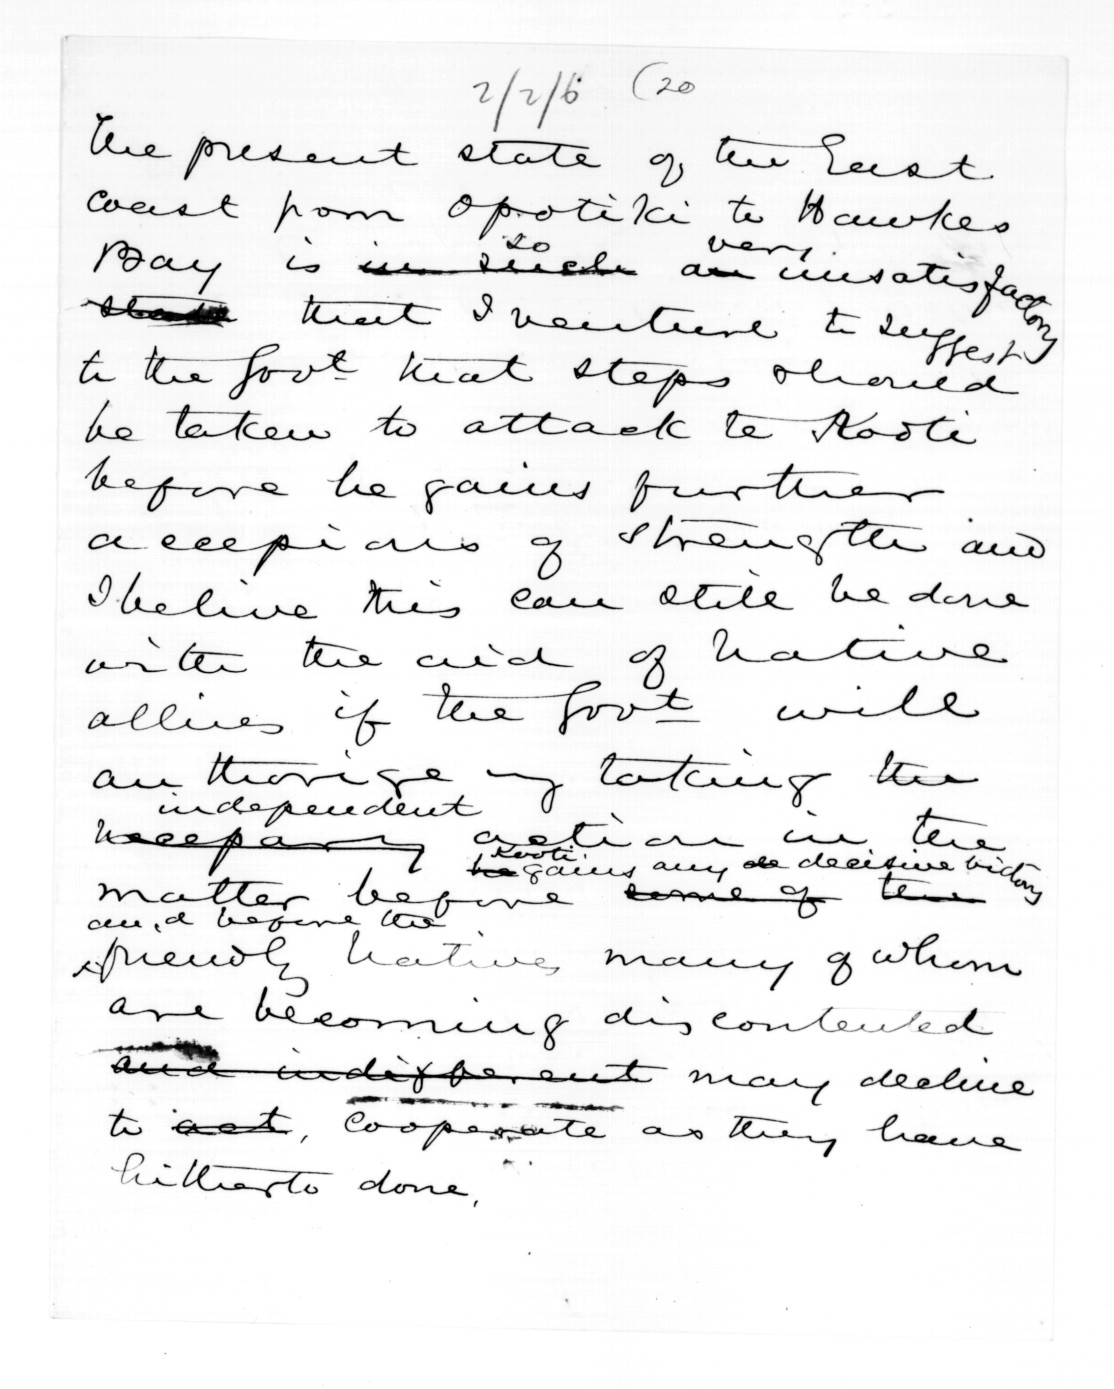 2/2/6 (20
The present state of the East
Coast from Opotiki to Hawkes
so very
Bay is in such an unsatisfactory
state that I venture to suggest
to the Govt that steps should
be taken to attack te Kooti
before he gains further
accessions of strength and
I belive this can still be done
with the aid of Native
allies if the Govt will
authorise my taking the
independent
necessary action in the
Kooti
he gains any de decisive victory
matter before some of the
and before the
friendly Natives many of whom
are becoming discontented
and indifferent may decline
to act, cooperate as they have
hitherto done,